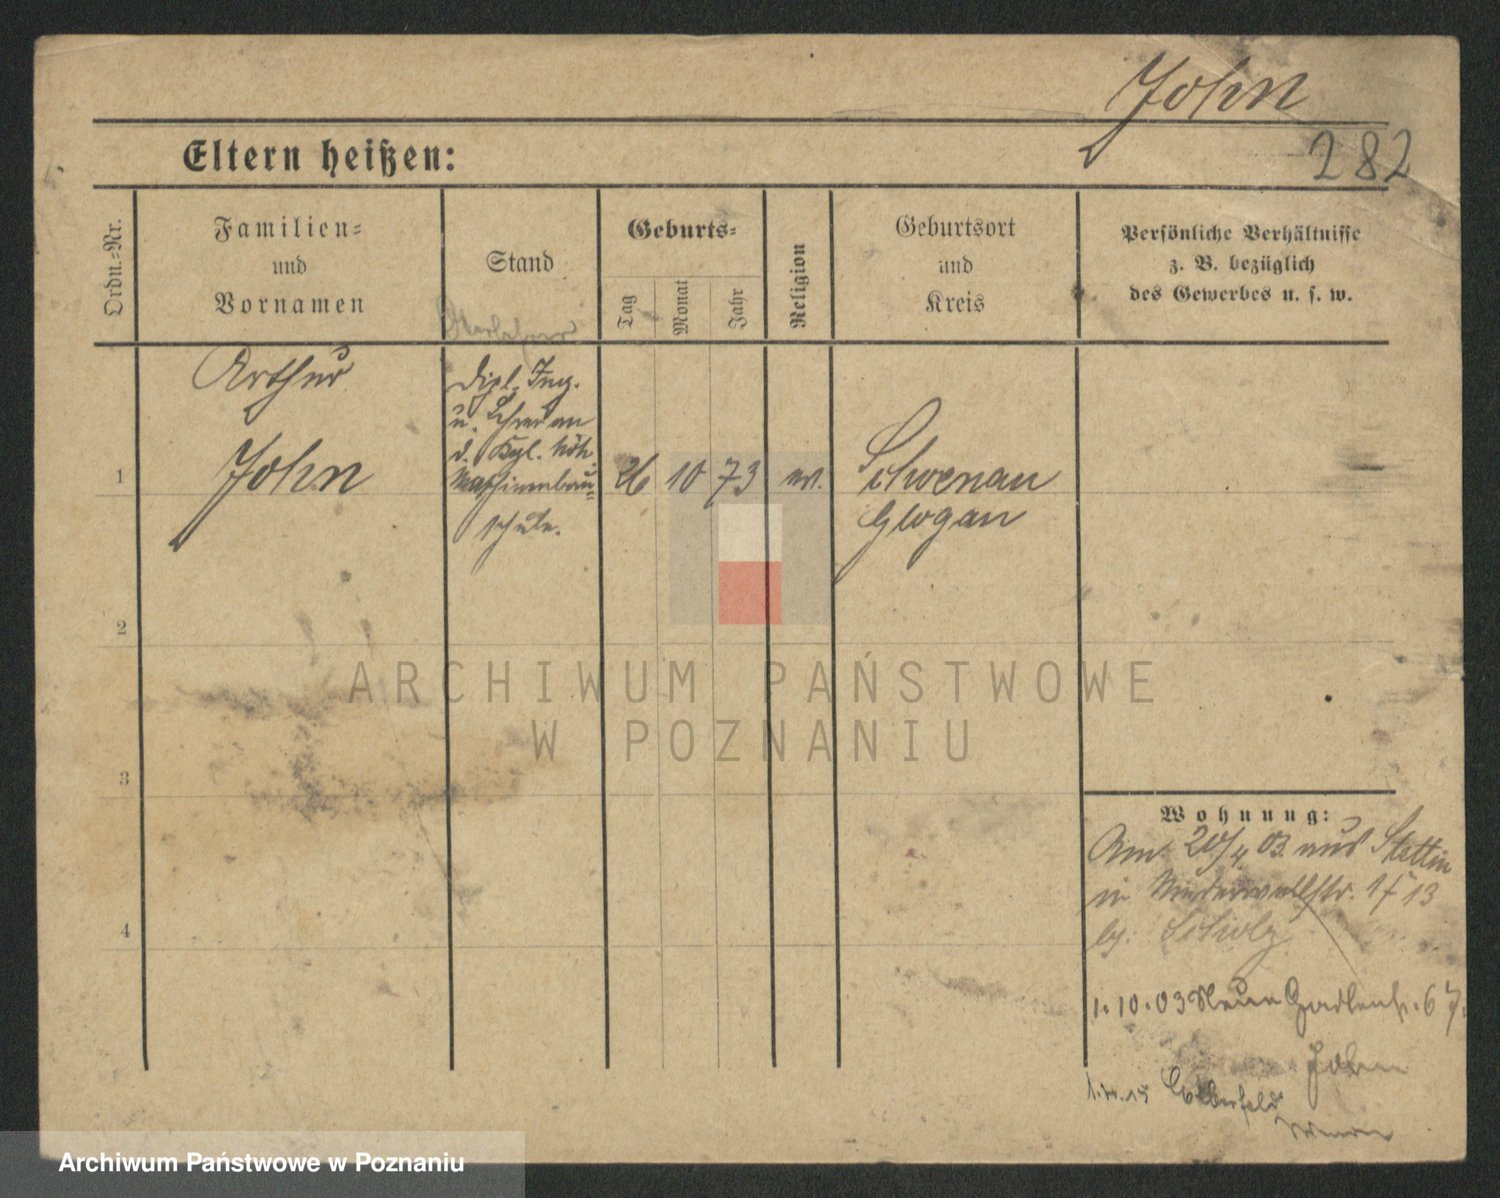 John
282
Eltern heißen:
Ordn.-Nr.
Familien-
und
Vornamen
Stand
Oberlehrer
Geburts-
Tag
Monat
Jahr
Religion
Geburtsort
und
Kreis
Persönliche Verhältnisse
z. B. bezüglich
des Gewerbes u. s. w.
Arthur
John
Dipl. Ing.
u. Lehrer an
d. Kgl. höh.
Maschinenbau-
schule.
1
26 10 73 ev.
Schoenau
Glogau
2
3
4
ARCHIWUM PAŃSTWOWE
W POZNANIU
Wohnung:
Am 20/4 03 aus Stettin
in Niederwallstr. 13
bj. Scholz
1.10.03 Neue Gartenstr. 67
John
Elberfeld
Archiwum Państwowe w Poznaniu